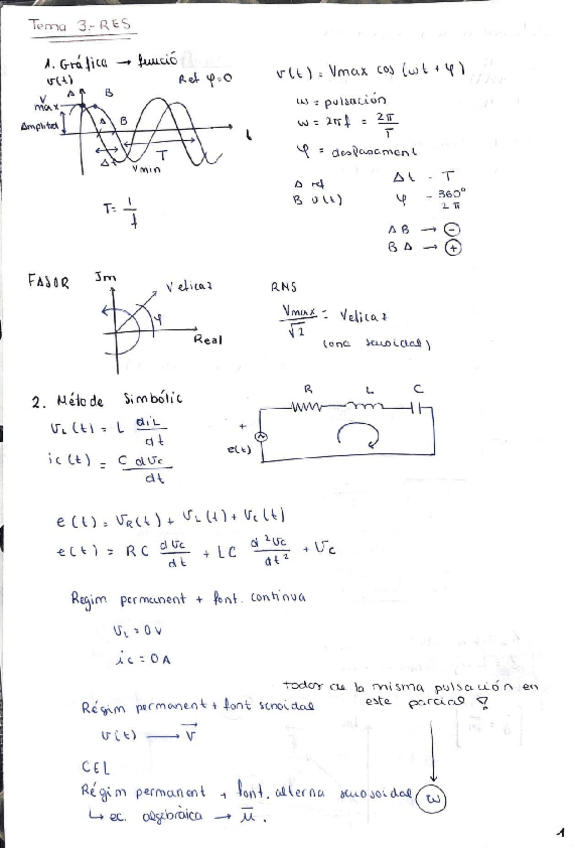 Tema 3.- RES
1. Gráfica → funció
v(t)
Ref φ=0
A B
Vmax
Amplitud
A B
Δt
Vmin
T
t
T = 1/f
v(t) = Vmax cos (ωt + φ)
ω = pulsación
ω = 2πf = 2π/T
φ = desplasament
A ref
B v(t)
Δt - T
φ - 360°
2π
AB → ⊖
BA → ⊕
FASOR
Jm
Veficaz
φ
Real
RMS
Vmax/√2 = Veficaz
(ona senoidal)
2. Método de Simbòlic
VL(t) = L diL/dt
ic(t) = C dvc/dt
R L C
+
e(t)
e(t) = VR(t) + VL(t) + Vc(t)
e(t) = RC dvc/dt + LC d²vc/dt² + Vc
Regim permanent + font. contínua
VL = 0V
ic = 0A
todos de la misma pulsación en
este parcial
Régim permanent + font senoidal
v(t) → V⃗
CEL
Régim permanent + font. alterna senosoidal
ω
↳ ec. algebràica → u̅.
1